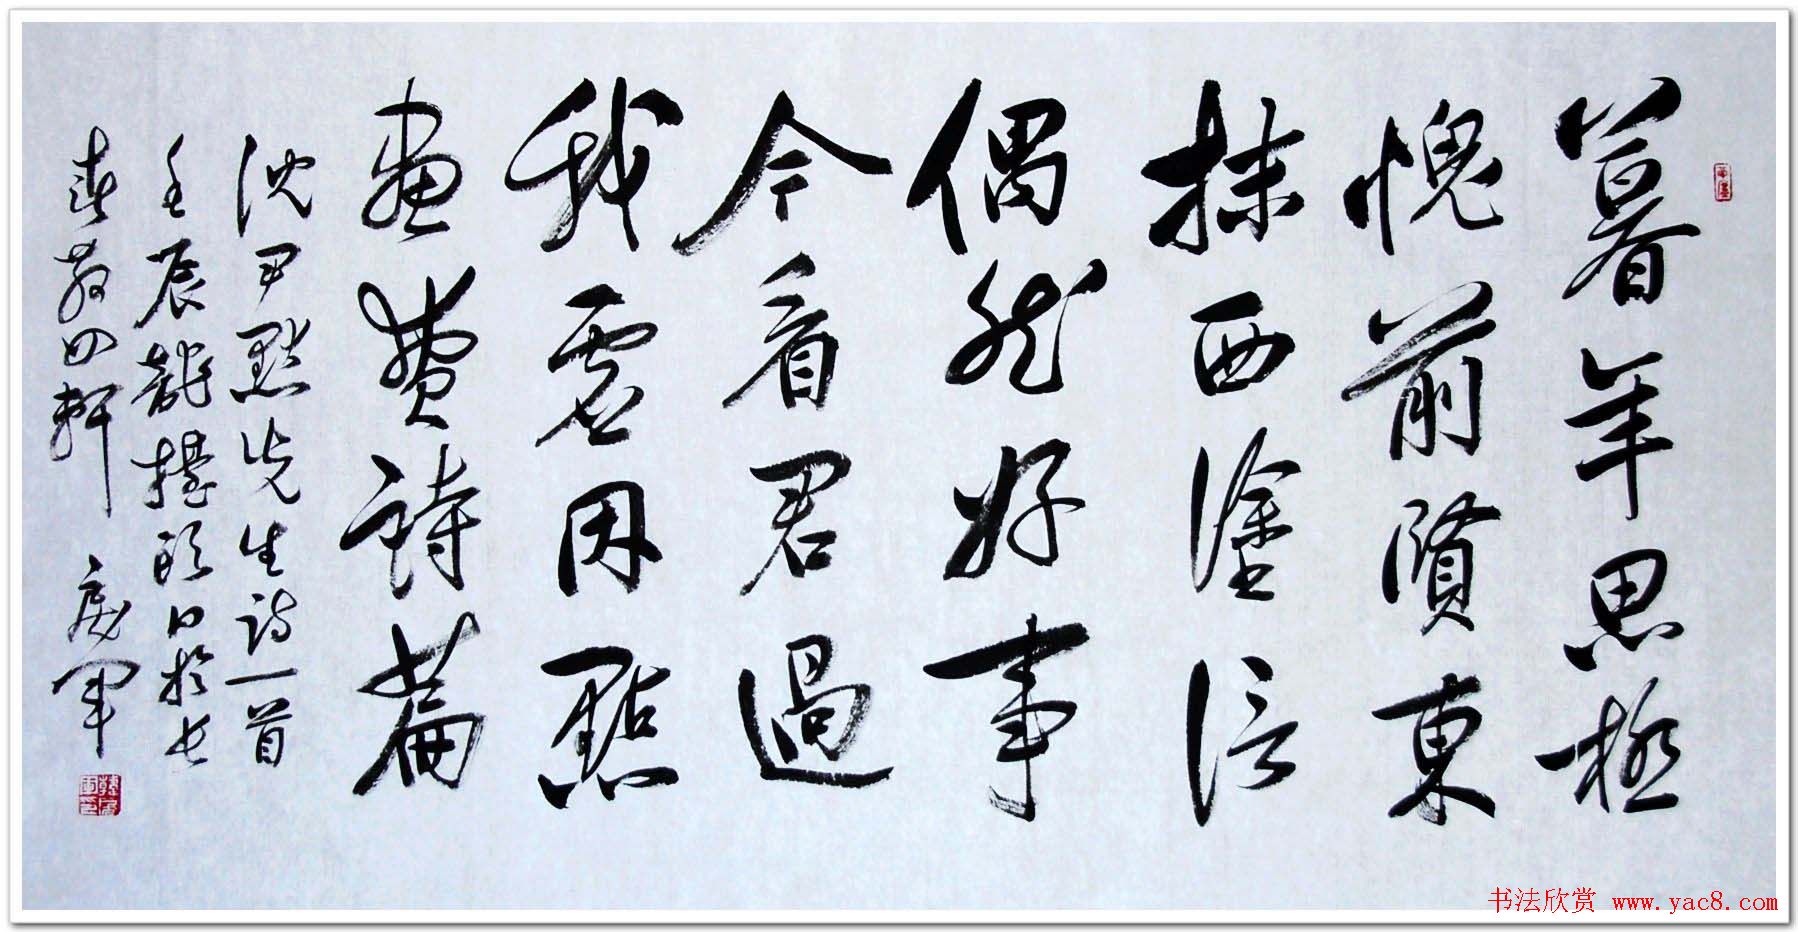 暮年思極
愧前賢東
抹西塗信
偶然好事
今看君過
我虛因點
畫費詩篇
沈尹默先生詩一首
壬辰龍擡頭日於長
春四軒 慶軍
书法欣赏 www.yac8.com